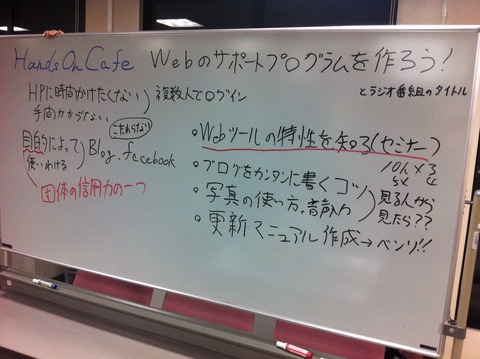 HandsOnCafe Webのサポートプログラムを作ろう!
とラジオ番組のタイトル
HPに時間かけたくない
手間かからない
複数人でログイン
こだわらない
目的によって
使いわける
Blog.facebook
団体の信用力の一つ
・Webツールの特性を知る(セミナー)
・ブログをカンタンに書くコツ
・写真の使い方、音声入力
・更新マニュアル作成→ベンリ!!
10人×3
5×4
見る人から
見たら??